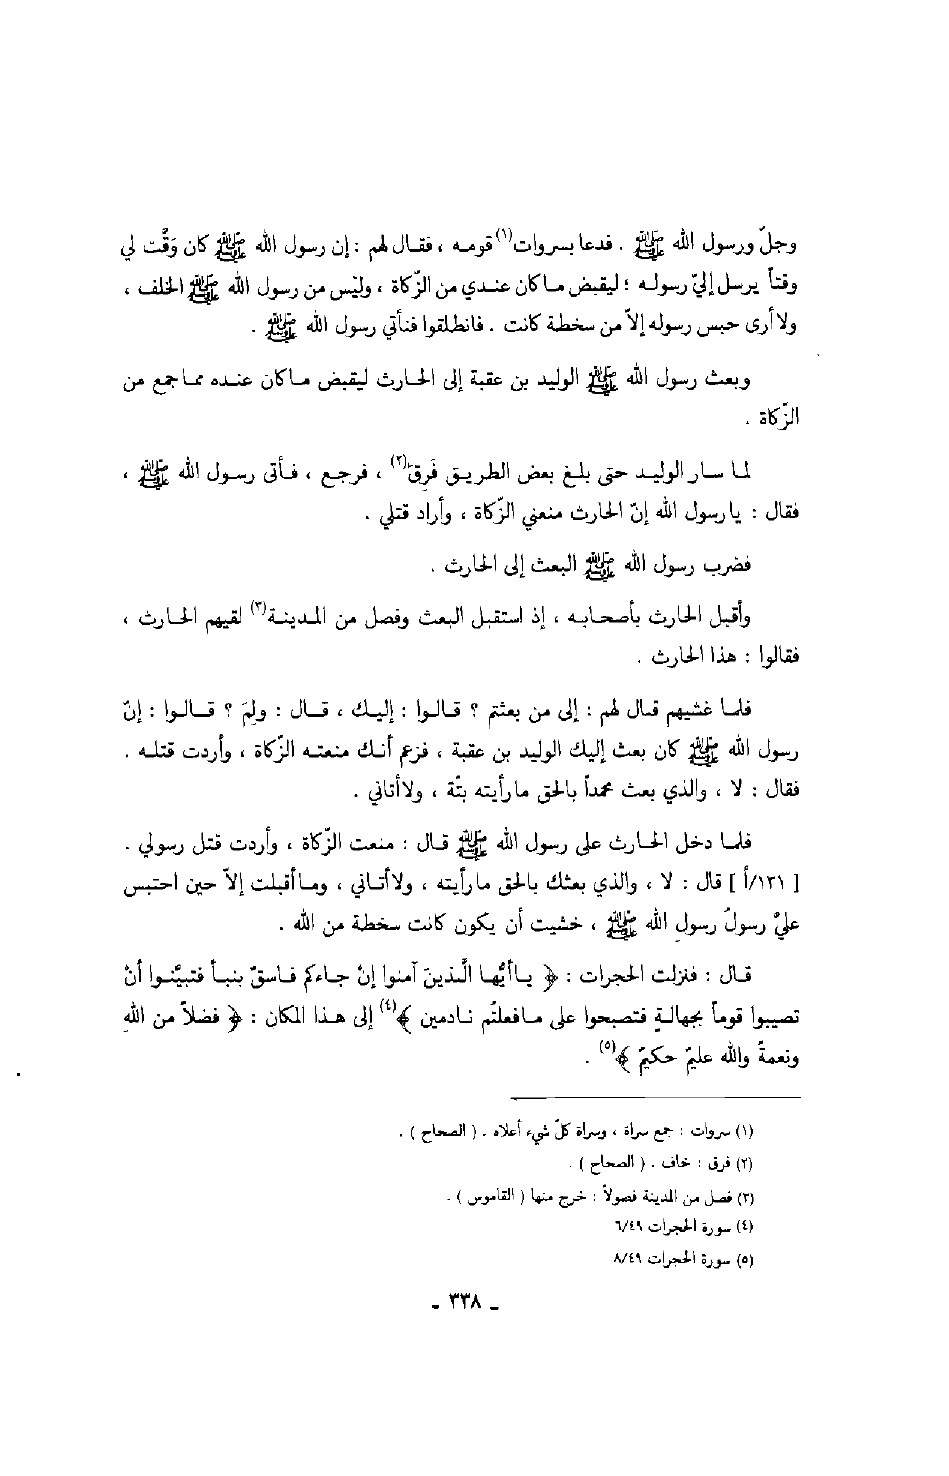 وجلّ ورسول الله ﷺ . فدعا بسروات(١) قومه ، فقال لهم : إن رسول الله ﷺ كان وَقَّت لي
وقتاً يرسل إليّ رسوله ؛ ليقبض ما كان عندي من الزّكاة ، وليس من رسول الله ﷺ الخلف ،
ولا أرى حبس رسوله إلاّ من سخطة كانت . فانطلقوا فنأتي رسول الله ﷺ .
وبعث رسول الله ﷺ الوليد بن عقبة إلى الحارث ليقبض ما كان عنده مما جمع من
الزّكاة .
لما سار الوليد حتى بلغ بعض الطريق فَرِقَ(٢) ، فرجع ، فأتى رسول الله ﷺ ،
فقال : يا رسول الله إنّ الحارث منعني الزّكاة ، وأراد قتلي .
فضرب رسول الله ﷺ البعث إلى الحارث .
وأقبل الحارث بأصحابه ، إذ استقبل البعث وفصل من المدينة(٣) لقيهم الحارث ،
فقالوا : هذا الحارث .
فلما غشيهم قال لهم : إلى من بعثتم ؟ قالوا : إليك ، قال : ولِمَ ؟ قالوا : إنّ
رسول الله ﷺ كان بعث إليك الوليد بن عقبة ، فزعم أنك منعته الزّكاة ، وأردت قتله .
فقال : لا ، والذي بعث محمداً بالحق ما رأيته بتّة ، ولا أتاني .
فلما دخل الحارث على رسول الله ﷺ قال : منعت الزّكاة ، وأردت قتل رسولي .
[ ١٣١/أ ] قال : لا ، والذي بعثك بالحق ما رأيته ، ولا أتاني ، وما أقبلت إلاّ حين احتبس
عليَّ رسولُ رسولِ الله ﷺ ، خشيت أن يكون كانت سخطة من الله .
قال : فنزلت الحجرات : ﴿ يا أيُّها الَّذينَ آمنوا إنْ جاءكم فاسقٌ بنبأ فتبيَّنوا أنْ
تصيبوا قوماً بجهالةٍ فتصبحوا على ما فعلتُم نادمين ﴾(٤) إلى هذا المكان : ﴿ فضلاً من اللهِ
ونعمةً والله عليمٌ حكيمٌ ﴾(٥) .
(١) سروات : جمع سراة ، وسراة كلّ شيء أعلاه . ( الصحاح ) .
(٢) فرق : خاف . ( الصحاح ) .
(٣) فصل من المدينة فصولاً : خرج منها ( القاموس ) .
(٤) سورة الحجرات ٦/٤٩
(٥) سورة الحجرات ٨/٤٩
- ٣٣٨ -